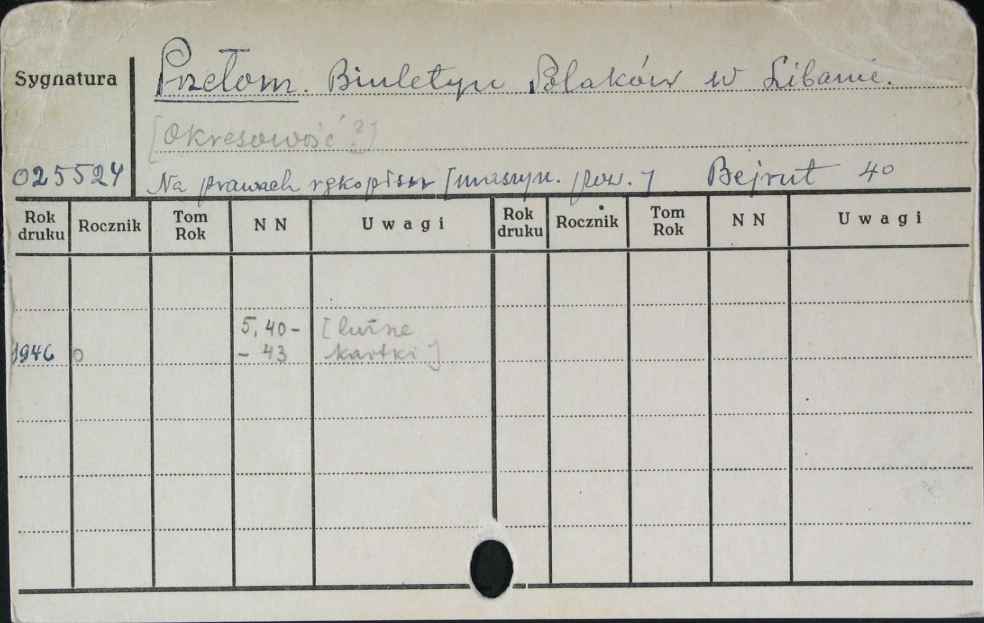 Sygnatura
Przełom. Biuletyn Polaków w Libanie.
[Okresowość?]
025524
Na prawach rękopisu [maszyn. pow.] Bejrut 40
Rok druku Rocznik Tom Rok NN Uwagi Rok druku Rocznik Tom Rok NN Uwagi
5,40- [luźne
1946 0 - 43 kartki]